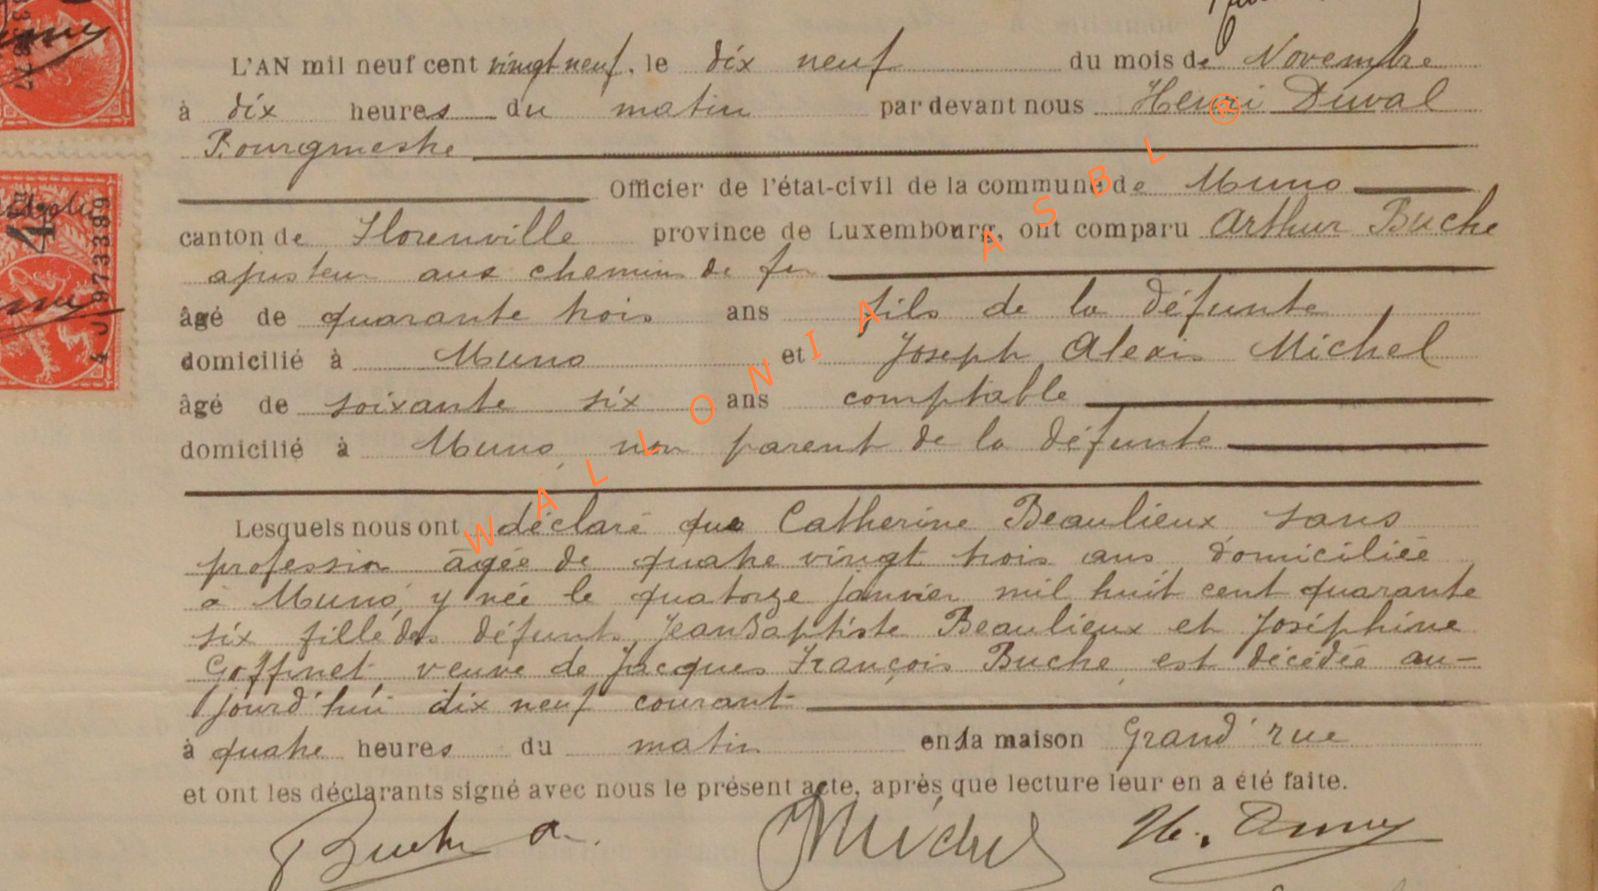 L'AN mil neuf cent vingt neuf, le dix neuf du mois de Novembre
à dix heures du matin par devant nous Henri Duval
Bourgmestre
Officier de l'état-civil de la commune de Muno
canton de Florenville province de Luxembourg, ont comparu Arthur Buche
ajusteur aux chemins de fer
âgé de quarante trois ans fils de la défunte
domicilié à Muno et Joseph Alexis Michel
âgé de soixante six ans comptable
domicilié à Muno, non parent de la défunte
Lesquels nous ont déclaré que Catherine Beaulieux sans
profession âgée de quatre vingt trois ans domiciliée
à Muno, y née le quatorze janvier mil huit cent quarante
six fille des défunts Jean Baptiste Beaulieux et Joséphine
Goffinet, veuve de Jacques François Buche, est décédée au-
jourd'hui dix neuf courant
à quatre heures du matin en la maison Grand'rue
et ont les déclarants signé avec nous le présent acte, après que lecture leur en a été faite.
Buche a. Michel
WALLONIA ASBL ®
4 J 973399